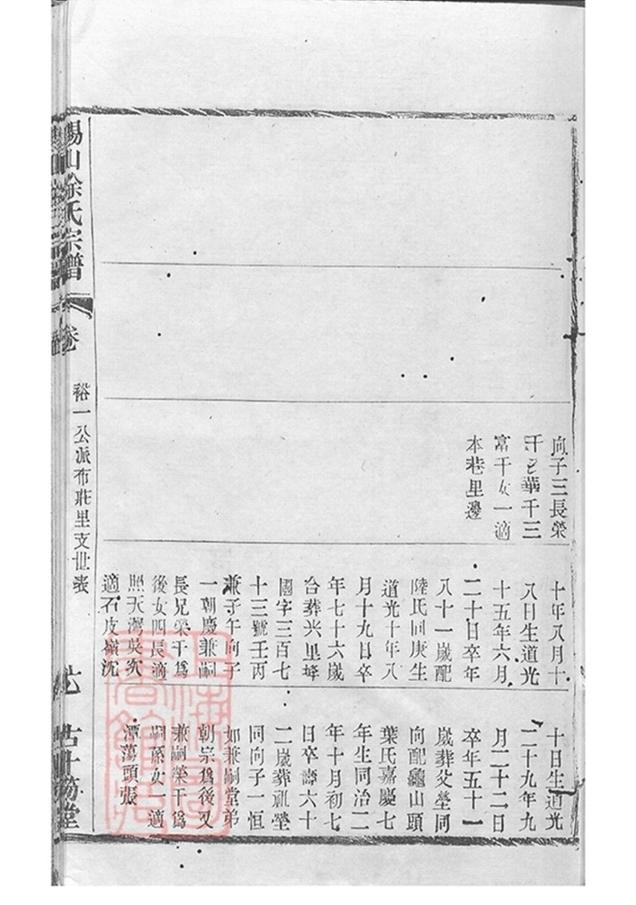 向子三長榮
干已華干三
富干女一適
本巷里邊
十年八月十
八日生道光
十五年六月
二十日卒年
八十一歲配
陸氏同庚生
道光十年八
月十九日卒
年七十六歲
合葬兴里塲
國字三百七
十三號壬丙
兼子午向子
一朝慶兼嗣
長兄榮干爲
後女四長適
照天灣吳次
適石皮嶺沈
十日生道光
二十九年九
月二十二日
卒年五十一
歲葬父塋同
向配龜山頭
葉氏嘉慶七
年生同治二
年十月初七
日卒壽六十
二歲葬祖塋
同向子一恒
如兼嗣堂弟
朝宗爲後又
兼嗣榮干爲
嗣孫女一適
潭蕩頭張
錫山徐氏宗譜
卷
裕一公派布莊里支世表